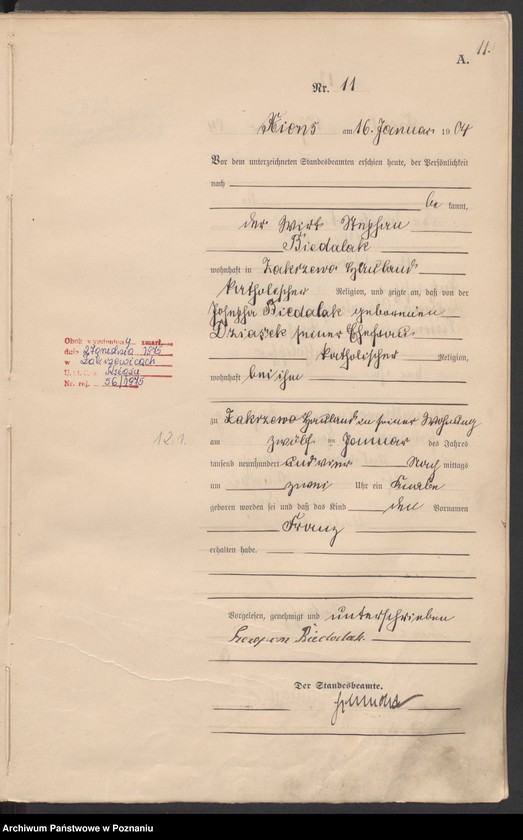 11.
A.
Nr. 11
Xions am 16. Januar 1904
Vor dem unterzeichneten Standesbeamten erschien heute, der Persönlichkeit
nach
be kannt,
der Wirt Stephan
Biedalak
wohnhaft in Zakrzewo Hauland
katholischer Religion, und zeigte an, daß von der
Josepha Biedalak geborenen
Dziasek seiner Ehefrau
katholischer Religion,
wohnhaft bei ihm
zu Zakrzewo Hauland in seiner Wohnung
am zwölf ten Januar des Jahres
tausend neunhundert und vier Nach mittags
um zwei Uhr ein Knabe
geboren worden sei und daß das Kind den Vornamen
Franz
erhalten habe.
Vorgelesen, genehmigt und unterschrieben
Biedalak
Der Standesbeamte.
Obok wymieniony zmarł
dnia 27 grudnia 1975
w Zakrzewicach
U.S.C. Książu
Nr. rej. 56/1975
12.1.
Archiwum Państwowe w Poznaniu